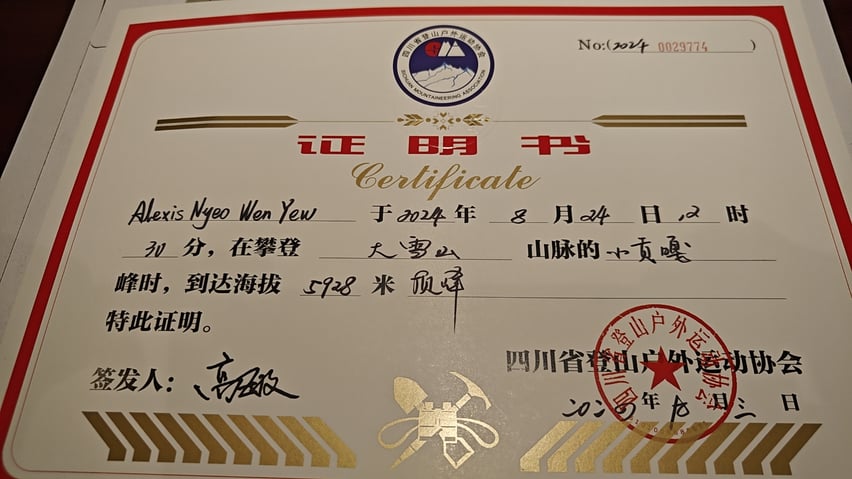 四川省登山户外运动协会
SICHUAN MOUNTAINEERING ASSOCIATION
No:(2024 0029774 )
证明书
Certificate
Alexis Nyeo Wen Yew 于2024年 8 月 24 日 12 时
30 分，在攀登 大雪山 山脉的 小贡嘎
峰时，到达海拔 5928 米 顶峰
特此证明。
四川省登山户外运动协会
签发人：
四川省登山户外运动协会
年 月 三 日